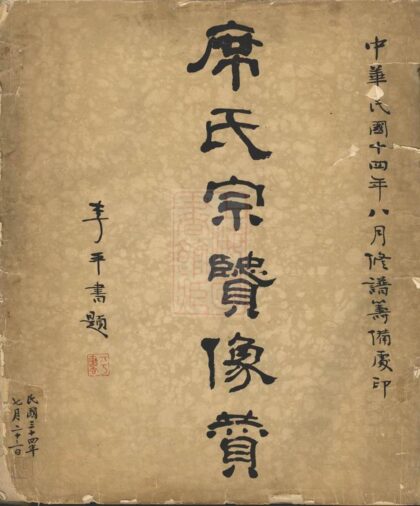 中華民國十四年八月修譜籌備處印
席氏宗贒像賛
李平書題
民國三十四年
七月